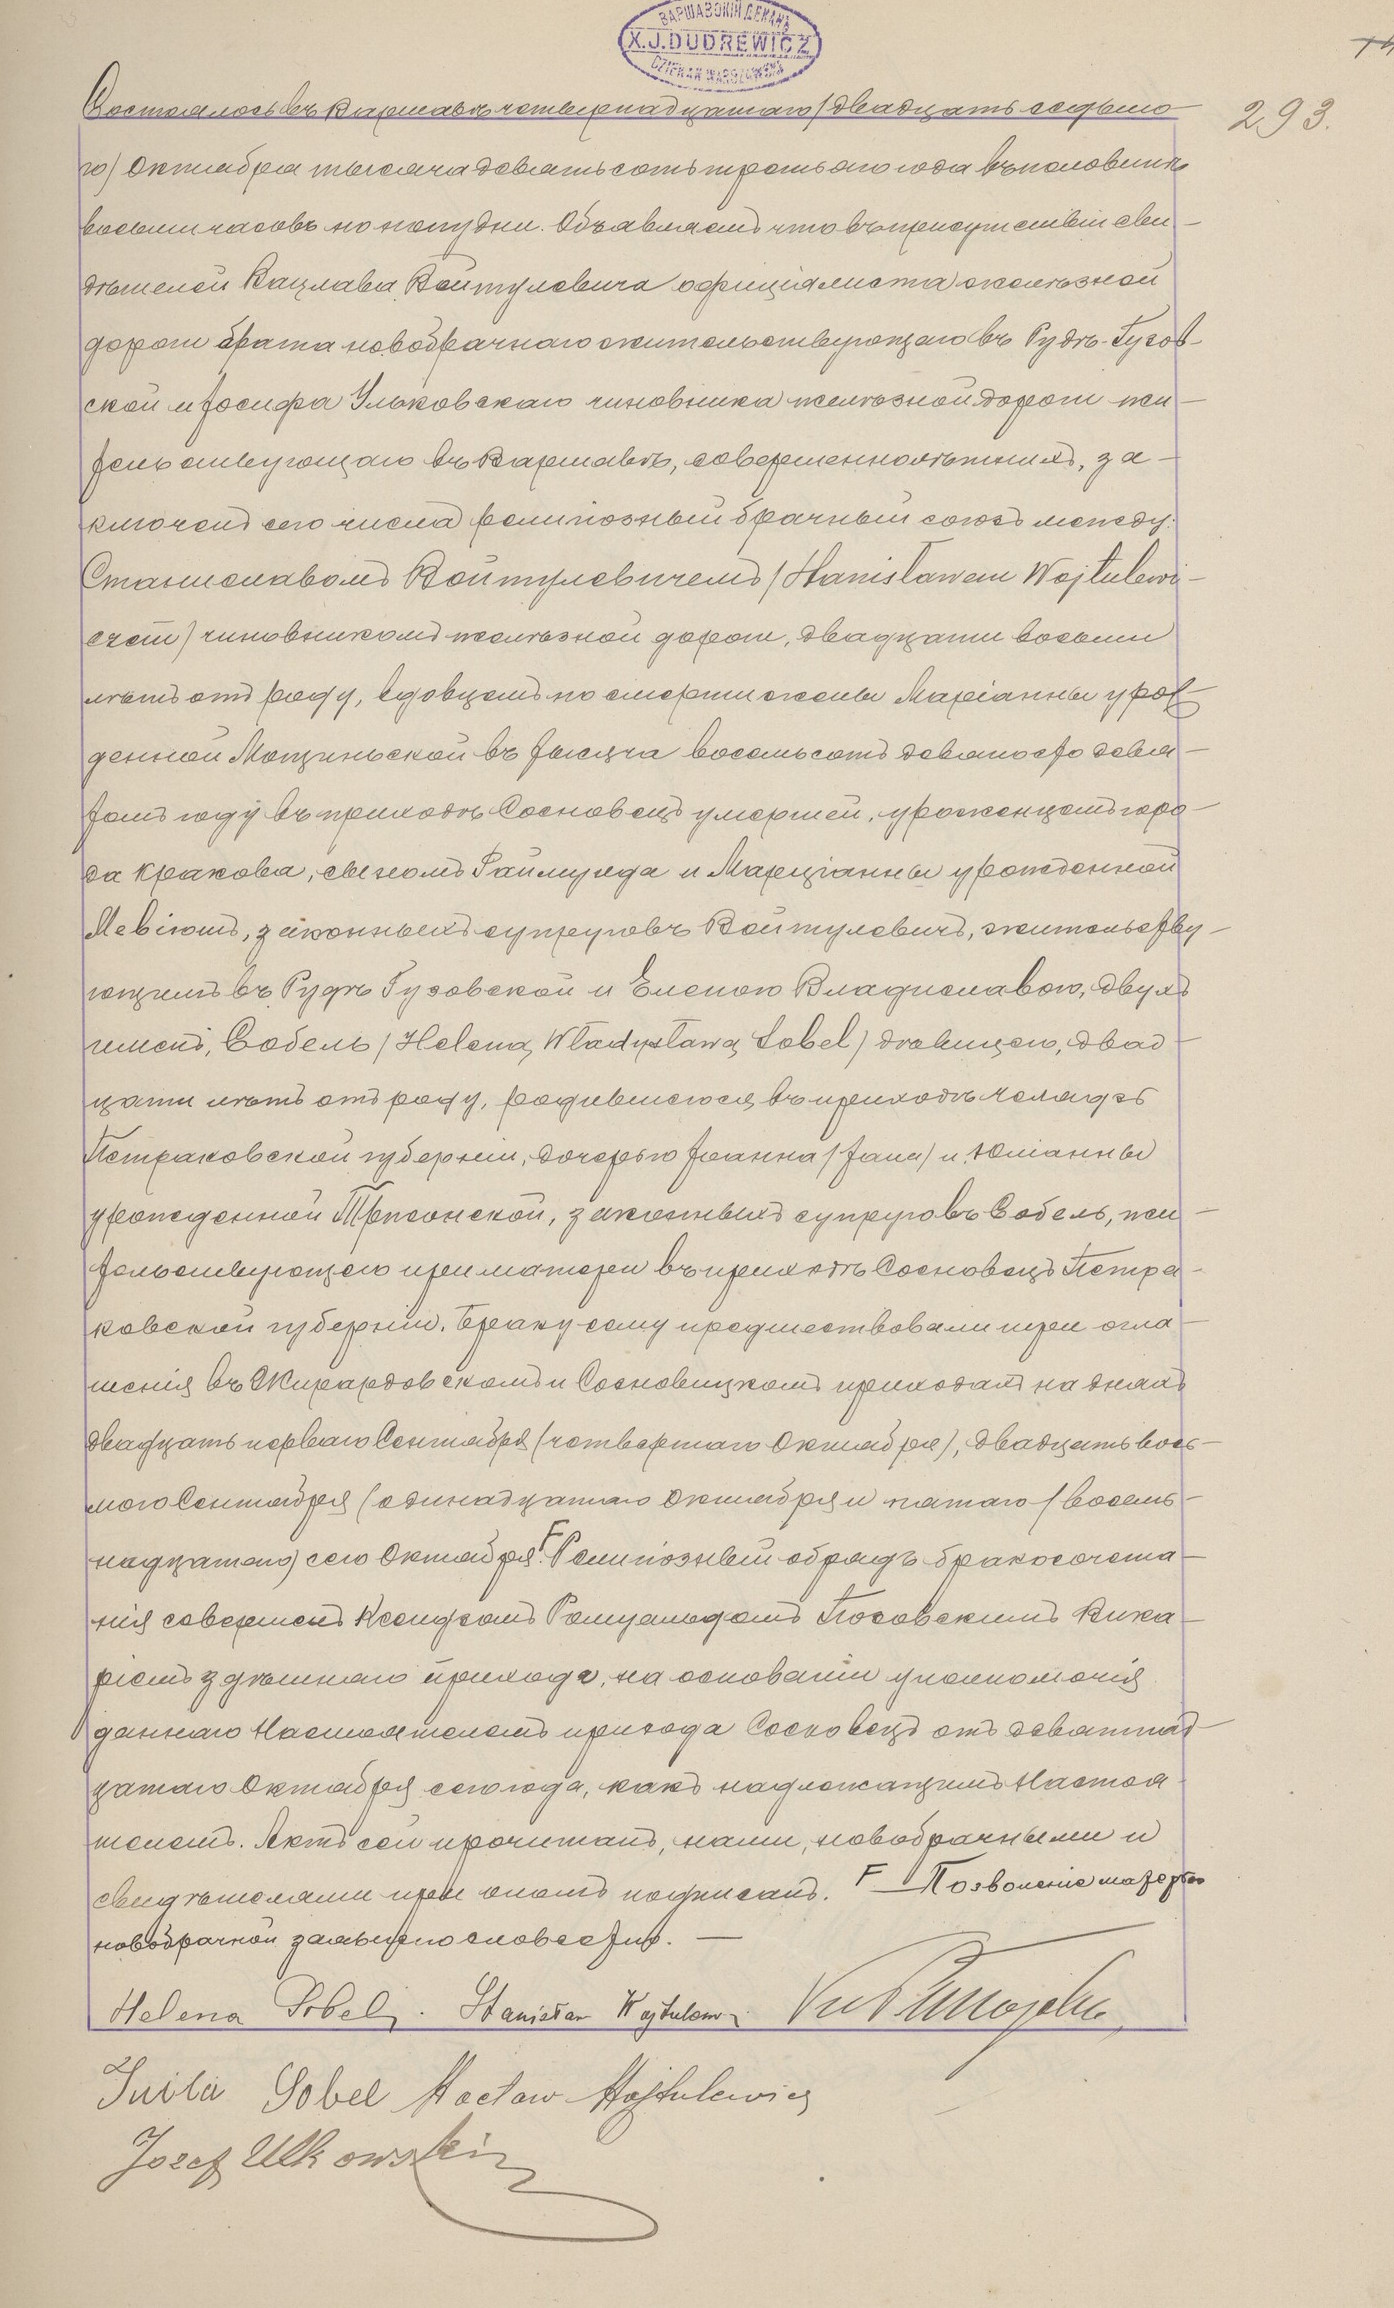 ВАРШАВСКІЙ ДЕКАНЪ
X.J.DUDREWICZ
DZIEKAN WARSZAWSKI
293.
Состоялось въ Варшавѣ четырнадцатаго /двадцать седьмо-
го) Октября тысяча девятьсотъ третьяго года въ половинѣ
восьми часовъ по полудни. Объявляемъ что въ присутствіи сви-
дѣтелей Вацлава Войтулевича оффиціалиста желѣзной
дороги брата новобрачнаго жительствующаго въ Рудѣ-Гузов-
ской и Іосифа Ульковскаго чиновника желѣзной дороги жи-
тельствующаго въ Варшавѣ, совершеннолѣтнихъ, за-
ключенъ сего числа религіозный брачный союзъ между:
Станиславомъ Войтулевичемъ /Stanisławem Wojtulewi-
czem) чиновникомъ желѣзной дороги, двадцати восьми
лѣтъ отъ роду, вдовцемъ по смерти жены Маріанны урож-
денной Мощиньской въ тысяча восемьсотъ девяносто девя-
томъ году въ приходѣ Сосновецъ умершей, уроженцемъ горо-
да Кракова, сыномъ Раймунда и Марціанны урожденной
законныхъ супруговъ Войтулевичъ, жительству-
ющимъ въ Рудѣ Гузовской и Еленою Владиславою, двухъ
именъ, Собель /Helena, Władysława Sobel) дѣвицею, двад-
цати лѣтъ отъ роду, родившеюся въ приходѣ Челядзь
Петраковской губерніи, дочерью Іоанна /Jana) и Юліанны
урожденной законныхъ супруговъ Собель, жи-
тельствующею при матери въ приходѣ Сосновецъ Петра-
ковской губерніи. Браку сему предшествовали три огла-
шенія въ Жирардовскомъ и Сосновицкомъ приходахъ на дняхъ
двадцать перваго Сентября (четвертаго Октября), двадцать вось-
мого Сентября (одинадцатаго Октября и пятаго /восемь-
надцатаго) сего Октября. F Религіозный обрядъ бракосочета-
нія совершенъ Ксендзомъ Ромуальдомъ Викa-
ріемъ здѣшнаго прихода, на основаніи уполномочія
даннаго Настоятелемъ прихода Сосновецъ отъ девятнад-
цатаго Октября сего года, какъ надлежащимъ Настоя-
телемъ. Актъ сей прочитанъ, нами, новобрачными и
свидѣтелями при ономъ подписанъ. F Позволеніе матерью
новобрачной заявлено словесно. —
Helena Sobel. Stanisław Wojtulewicz
Julia Sobel Wacław Wojtulewicz
Józef Ulkowski